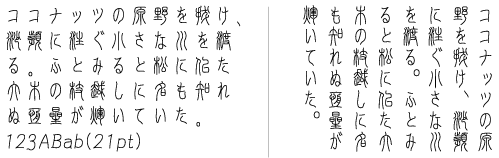 ココナッツの原野をけ、
に注ぐ小さな川を渡
る。ふとみると松に似た
木の枝しに名も知
れぬが輝いていた。
123ABab(21pt)
ココナッツの原
野をけ、
に注ぐ小さな川
を渡る。ふとみ
ると松に似た
木の枝しに名
も知れぬが
輝いていた。